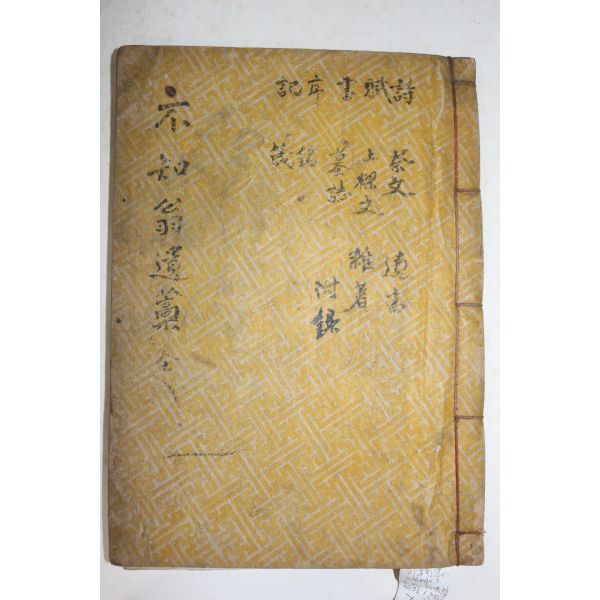 詩 祭文 遺事
賦 上樑文 雜著
書 墓誌 附錄
序 銘
記 箴
不知翁遺藁 全